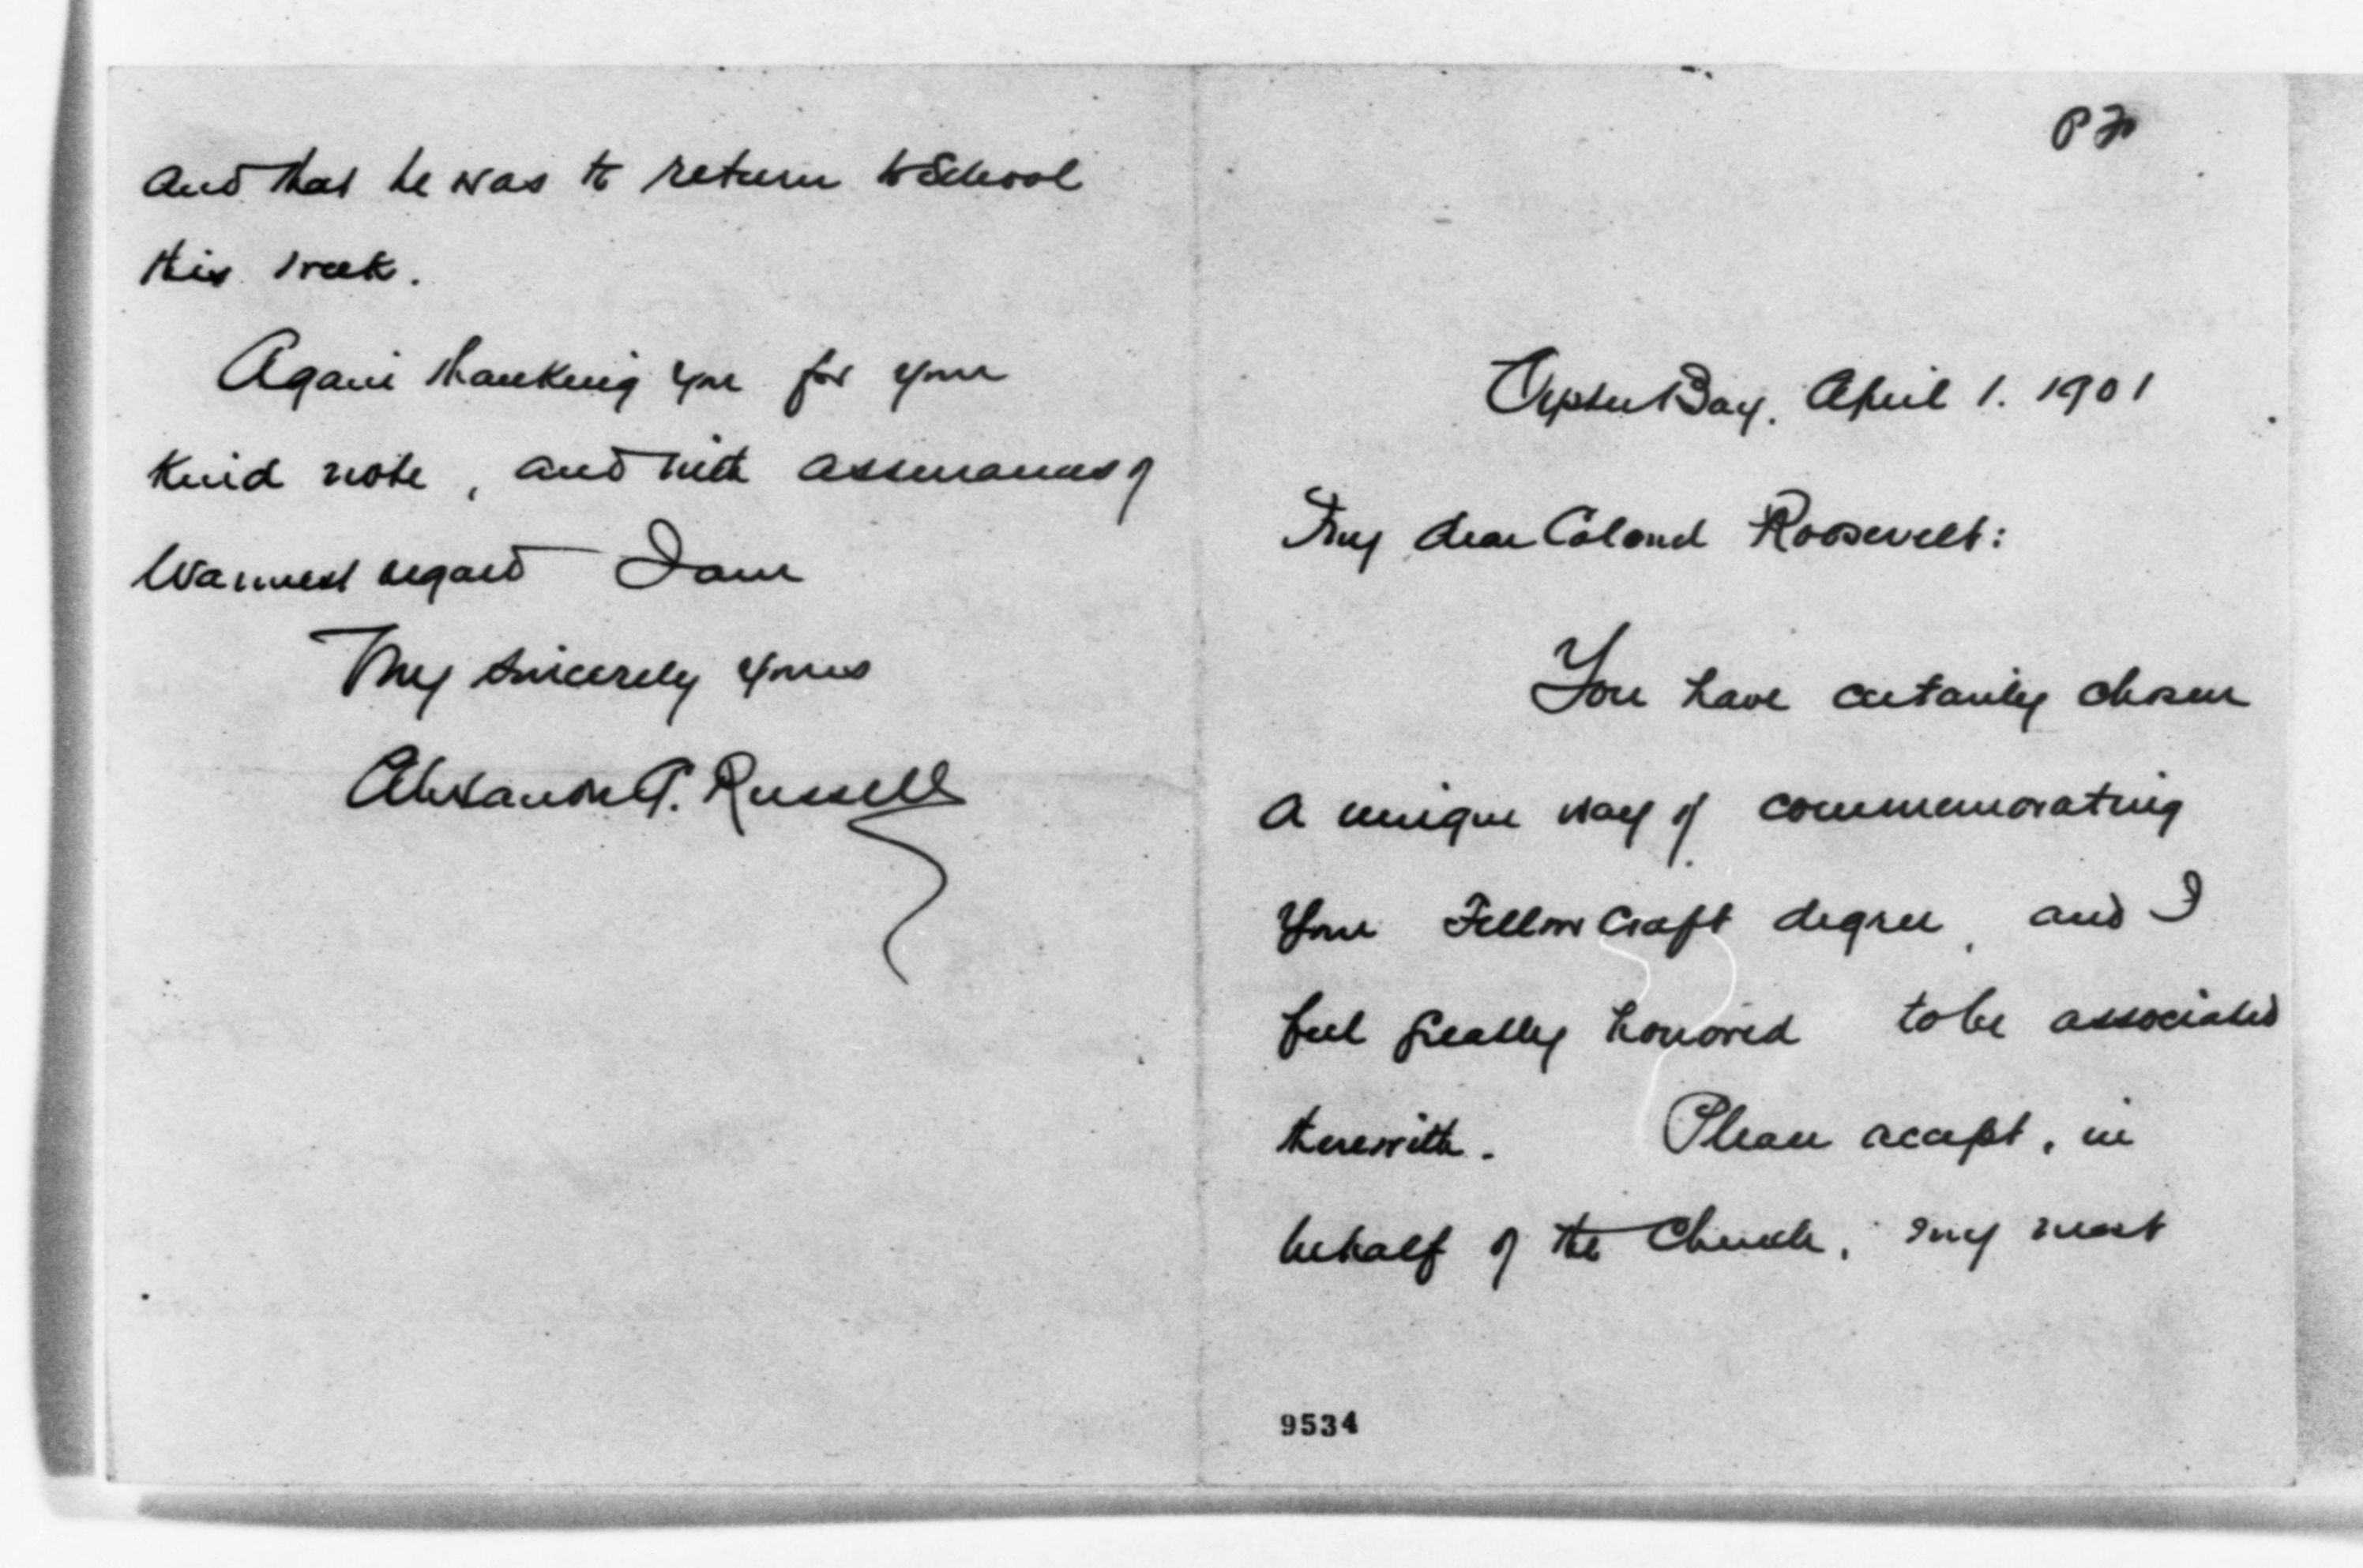 and that he was to return to School
this week.
Again thanking you for your
kind note, and with assurances of
warmest regard I am
Very sincerely yours
Alexander G. Russell
Oyster Bay. April 1. 1901
My dear Colonel Roosevelt:
You have certainly chosen
a unique way of commemorating
your Fellow Craft degree, and I
feel greatly honored to be associated
therewith. Please accept, in
behalf of the Church, my most
9534